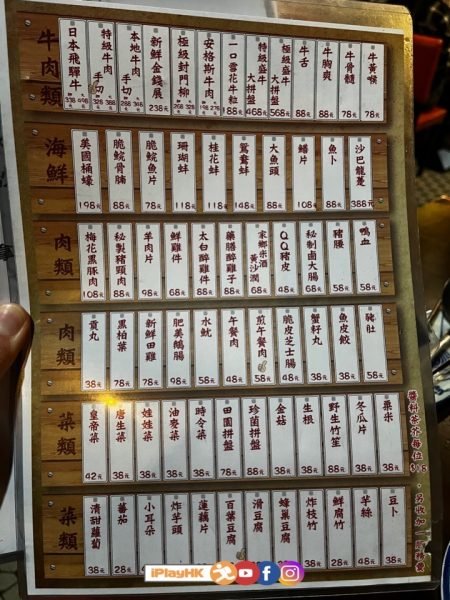 牛肉類
日本飛騨牛
特級牛肉 手切
本地牛肉 手切
新鮮金錢展 238元
極級封門柳
安格斯牛肉
一口雪花牛粒 88元
特級盛牛大拼盤 468元
極級盛牛大拼盤 568元
牛舌 88元
牛胸爽 88元
牛骨髓 78元
牛黃喉 78元
海鮮
美國桶蠔 198元
脆鯇骨腩 88元
脆鯇魚片 78元
珊瑚蚌 118元
桂花蚌 118元
鴛鴦蚌 148元
大魚頭 88元
鱔片 108元
魚卜 88元
沙巴龍躉 388元
肉類
梅花黑豚肉 108元
秘製豬頸肉 88元
羊肉片 98元
鮮雞件 68元
太白醉雞件 88元
藥膳醉雞子 88元
家鄉米酒黃沙潤 68元
QQ豬皮 48元
秘制鹵大腸 68元
豬腰 58元
鴨血 58元
肉類
貢丸 38元
黑柏葉 78元
新鮮田雞 78元
肥美鵝腸 98元
水魷 58元
午餐肉 48元
煎午餐肉 58元
脆皮芝士腸 48元
蟹籽丸 38元
魚皮餃 38元
豬肚 58元
菜類
皇帝菜 42元
唐生菜 38元
娃娃菜 38元
油麥菜 38元
時令菜 38元
田園拼盤 78元
珍菌拼盤 88元
金菇 38元
生根 38元
野生竹笙 88元
冬瓜片 38元
粟米 38元
菜類
清甜蘿蔔 38元
蕃茄 28元
小耳朵
炸芋頭
蓮藕片
百葉豆腐
滑豆腐
蜂巢豆腐
炸枝竹 38元
鮮腐竹 28元
芋絲 48元
豆卜 38元
醬料茶芥每位$18，另收加一服務費
iPlayHK